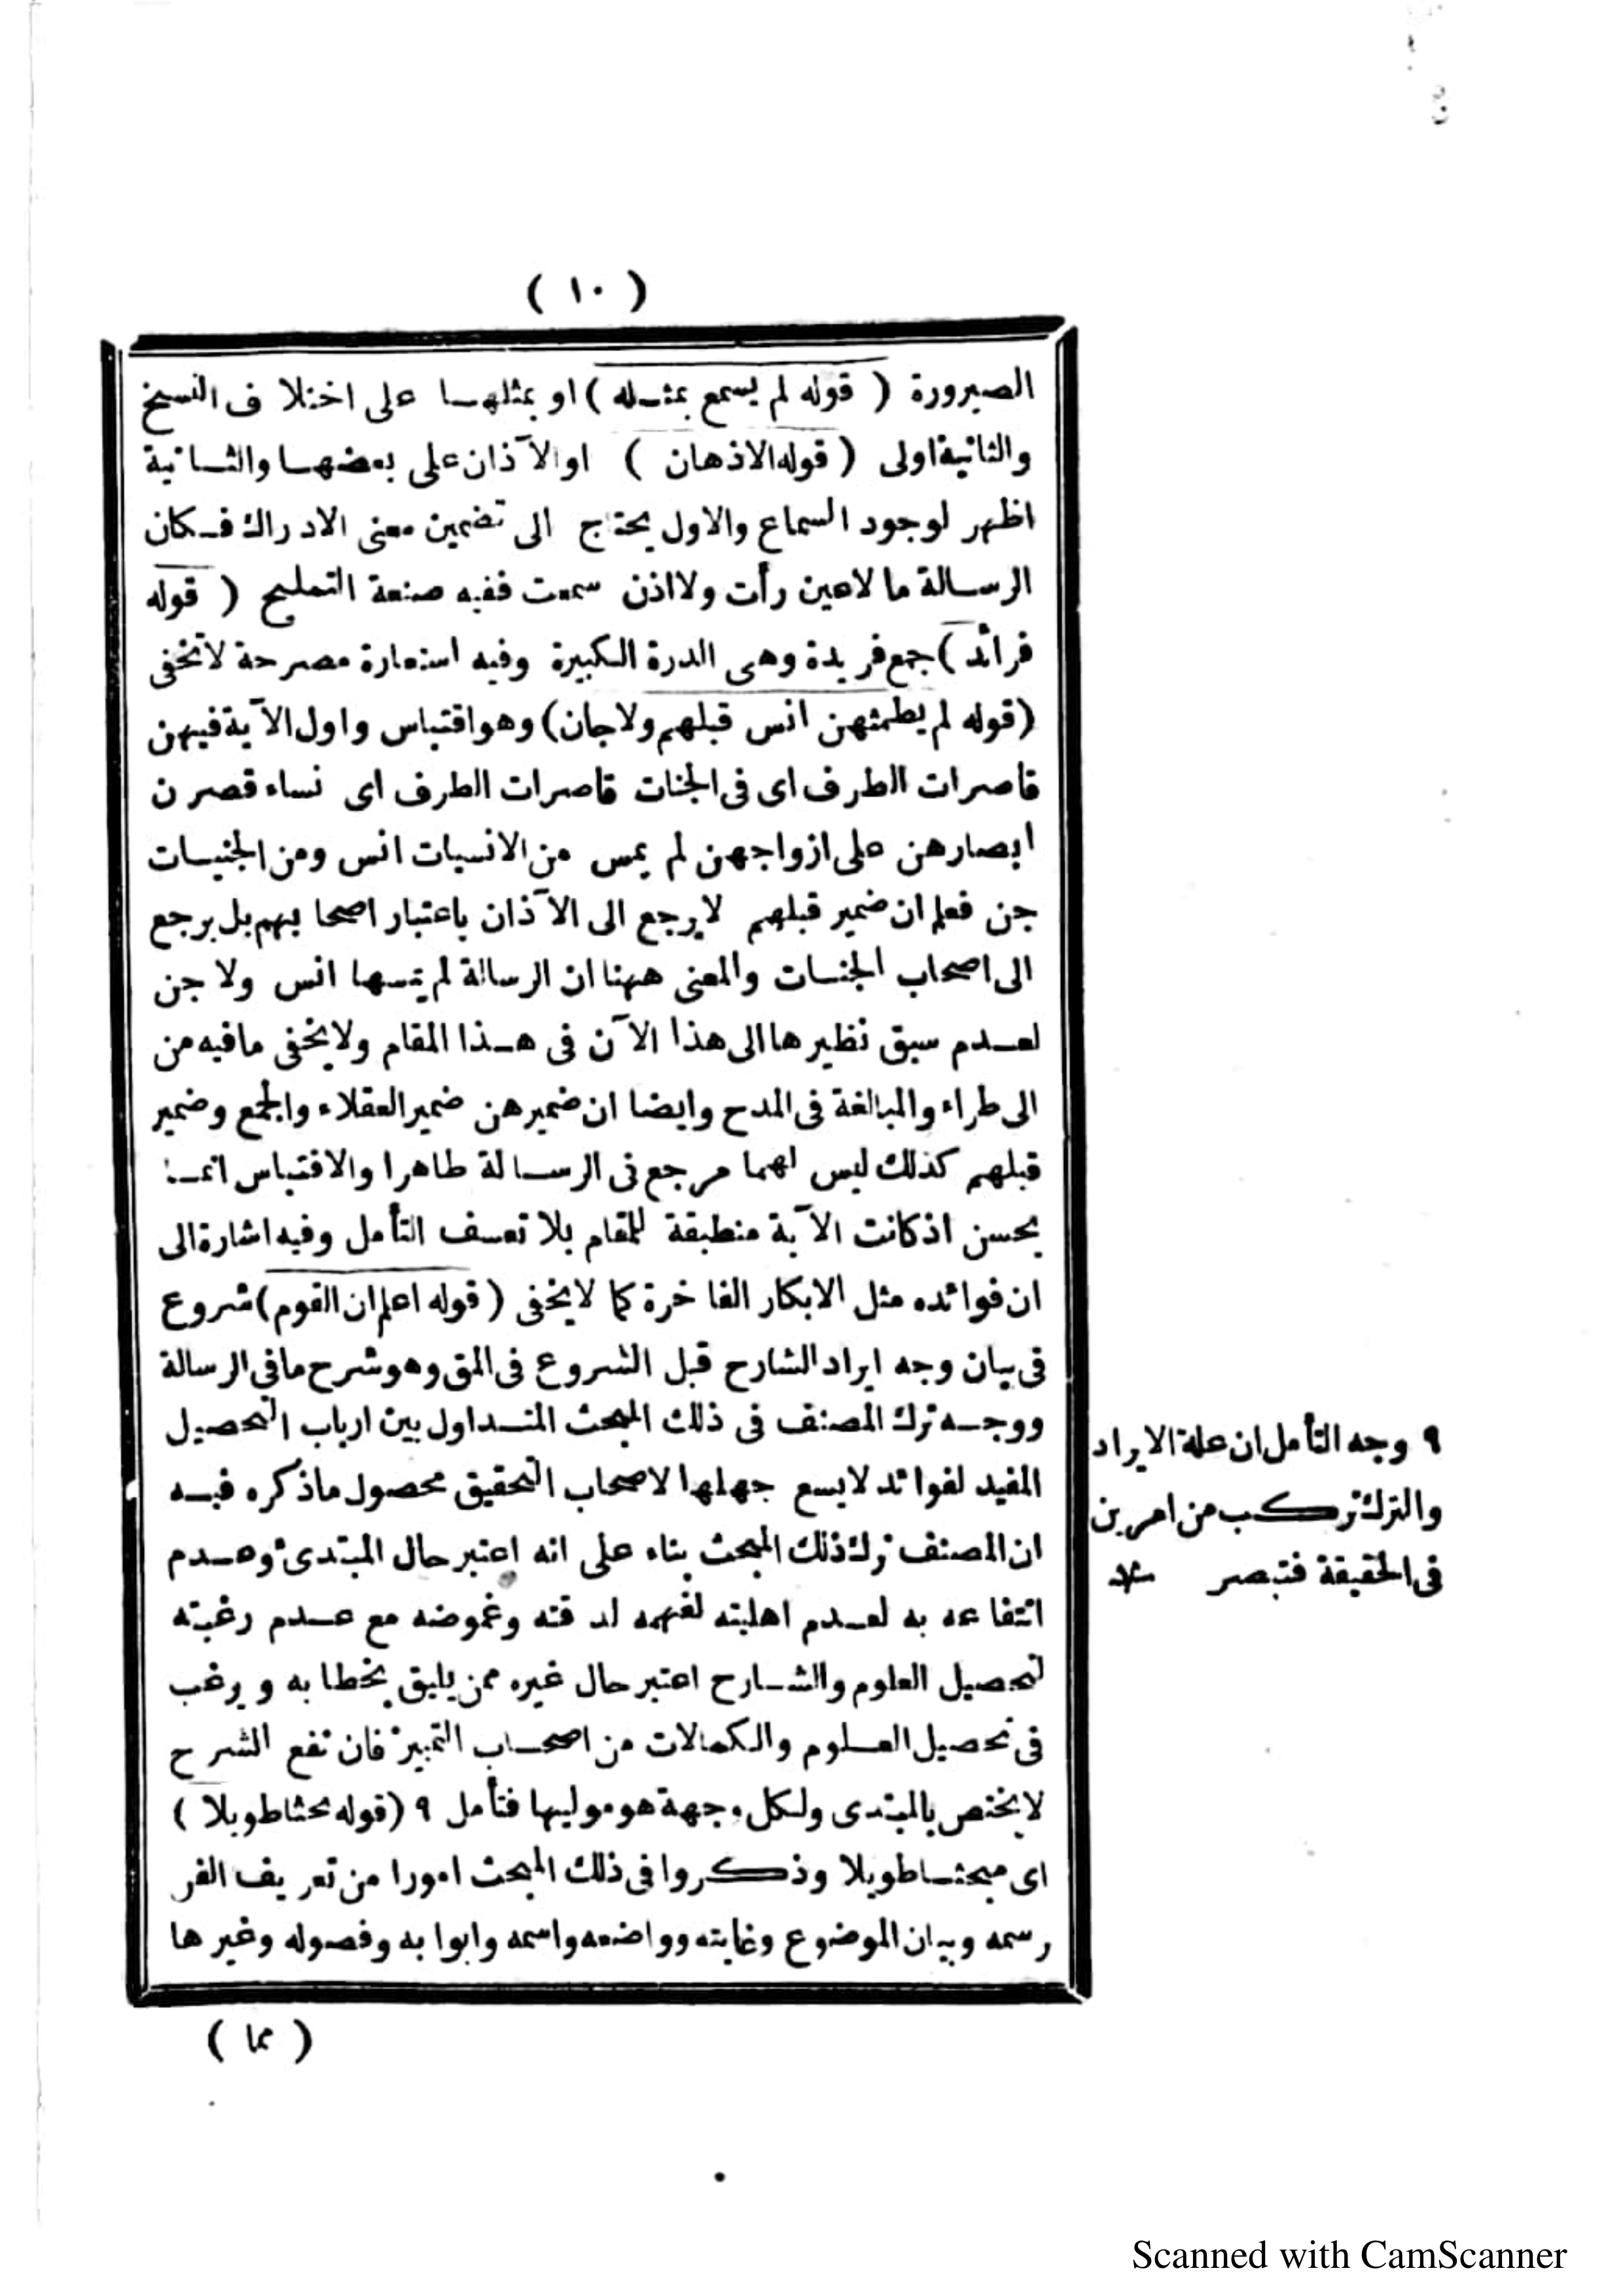 ( ١٠ )
الصيرورة ( قوله لم يسمع بمثـله ) او بمثلهـا على اختلا ف النسخ
والثانية اولى ( قوله الاذهان ) او الآذان على بعضهـا والثـانية
اظهر لوجود السماع والاول يحتاج الى تضمين معنى الادراك فـكان
الرسـالة ما لا عين رأت ولا اذن سمعت ففيه صنعة التمليح ( قوله
فرائد ) جمع فريدة وهى الدرة الكبيرة وفيه استعارة مصرحة لا تخفى
(قوله لم يطمثهن انس قبلهم ولا جان) وهو اقتباس واول الآية فيهن
قاصرات الطرف اى فى الجنات قاصرات الطرف اى نساء قصرن
ابصارهن على ازواجهن لم يمس من الانسيات انس ومن الجنيـات
جن فعلم ان ضمير قبلهم لا يرجع الى الآذان باعتبار اصحابهم بل يرجع
الى اصحاب الجنـات والمعنى ههنا ان الرسالة لم يمسها انس ولا جن
لعـدم سبق نظيرها الى هذا الآن فى هـذا المقام ولا يخفى ما فيه من
الى طراء والمبالغة فى المدح وايضا ان ضمير هن ضمير العقلاء والجمع وضمير
قبلهم كذلك ليس لهما مرجع فى الرسـالة ظاهرا والاقتباس انمـا
يحسن اذ كانت الآية منطبقة للمقام بلا تعسف التأمل وفيه اشارة الى
ان فوائده مثل الابكار الفاخرة كما لا يخفى ( قوله اعلم ان القوم) شروع
فى بيان وجه ايراد الشارح قبل الشروع فى المق وهو شرح ما فى الرسالة
ووجـه ترك المصنف فى ذلك المبحث المتـداول بين ارباب التحصيل
المفيد لفوائد لا يسع جهلها لاصحاب التحقيق محصول ما ذكره فيـه
ان المصنف ترك ذلك المبحث بناء على انه اعتبر حال المبتدئ وعـدم
انتفاعه به لعـدم اهليته لفهمه لدقته وغموضه مع عـدم رغبته
لتحصيل العلوم والشـارح اعتبر حال غيره ممن يليق بخطابه ويرغب
فى تحصيل العـلوم والكمالات من اصحـاب التمييز فان نفع الشرح
لا يختص بالمبتدى ولكل وجهة هو موليها فتأمل ٩ (قوله بحثا طويلا )
اى مبحثـا طويلا وذكروا فى ذلك المبحث امورا من تعريف الفن
رسمه وبيان الموضوع وغايته وواضعه واسمه وابوابه وفصوله وغيرها
( مما )
٩ وجه التأمل ان علة الايراد
والترك تركب من امرين
فى الحقيقة فتبصر
Scanned with CamScanner